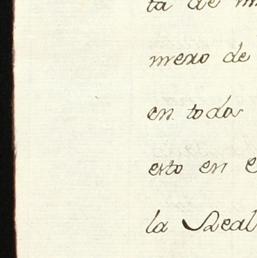 ta de
mero de
en toda
esto en
la Real